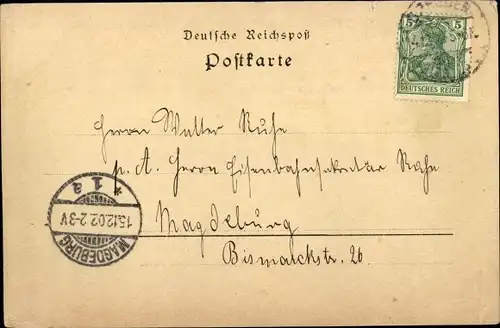 Deutsche Reichspost
Postkarte
5 5
DEUTSCHES REICH
Herrn Walter Ruhe
p. A. Herrn Eisenbahnsekretär Ruhe
Magdeburg
Bismarckstr. 26
MAGDEBURG
15.12.02. 2-3 V
* 1 a